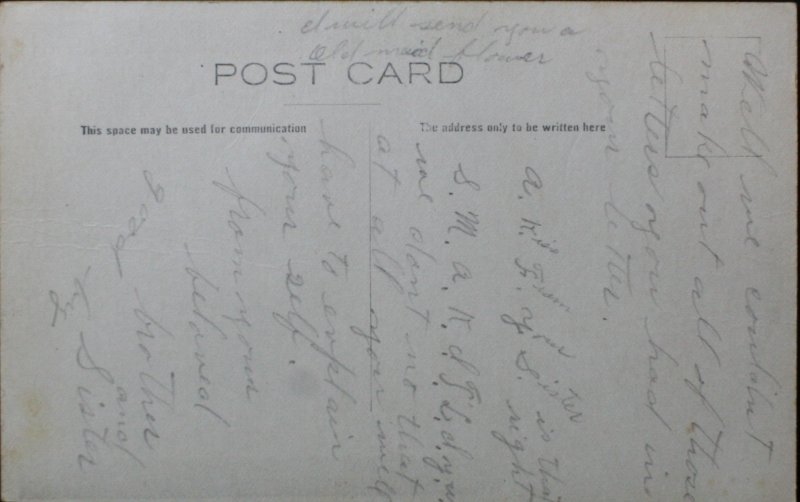 I will send you a
Old maid flower
POST CARD
This space may be used for communication
The address only to be written here
Well we couldn't
make out all of those
letters you had in
your letter.
a. K. F. Y. S. is this right
is from your sister
S. M. a. K. d. F. L. d. y.
we dont no that
at all you will
have to explain
your self.
from your
beloved
brother
and
Sister